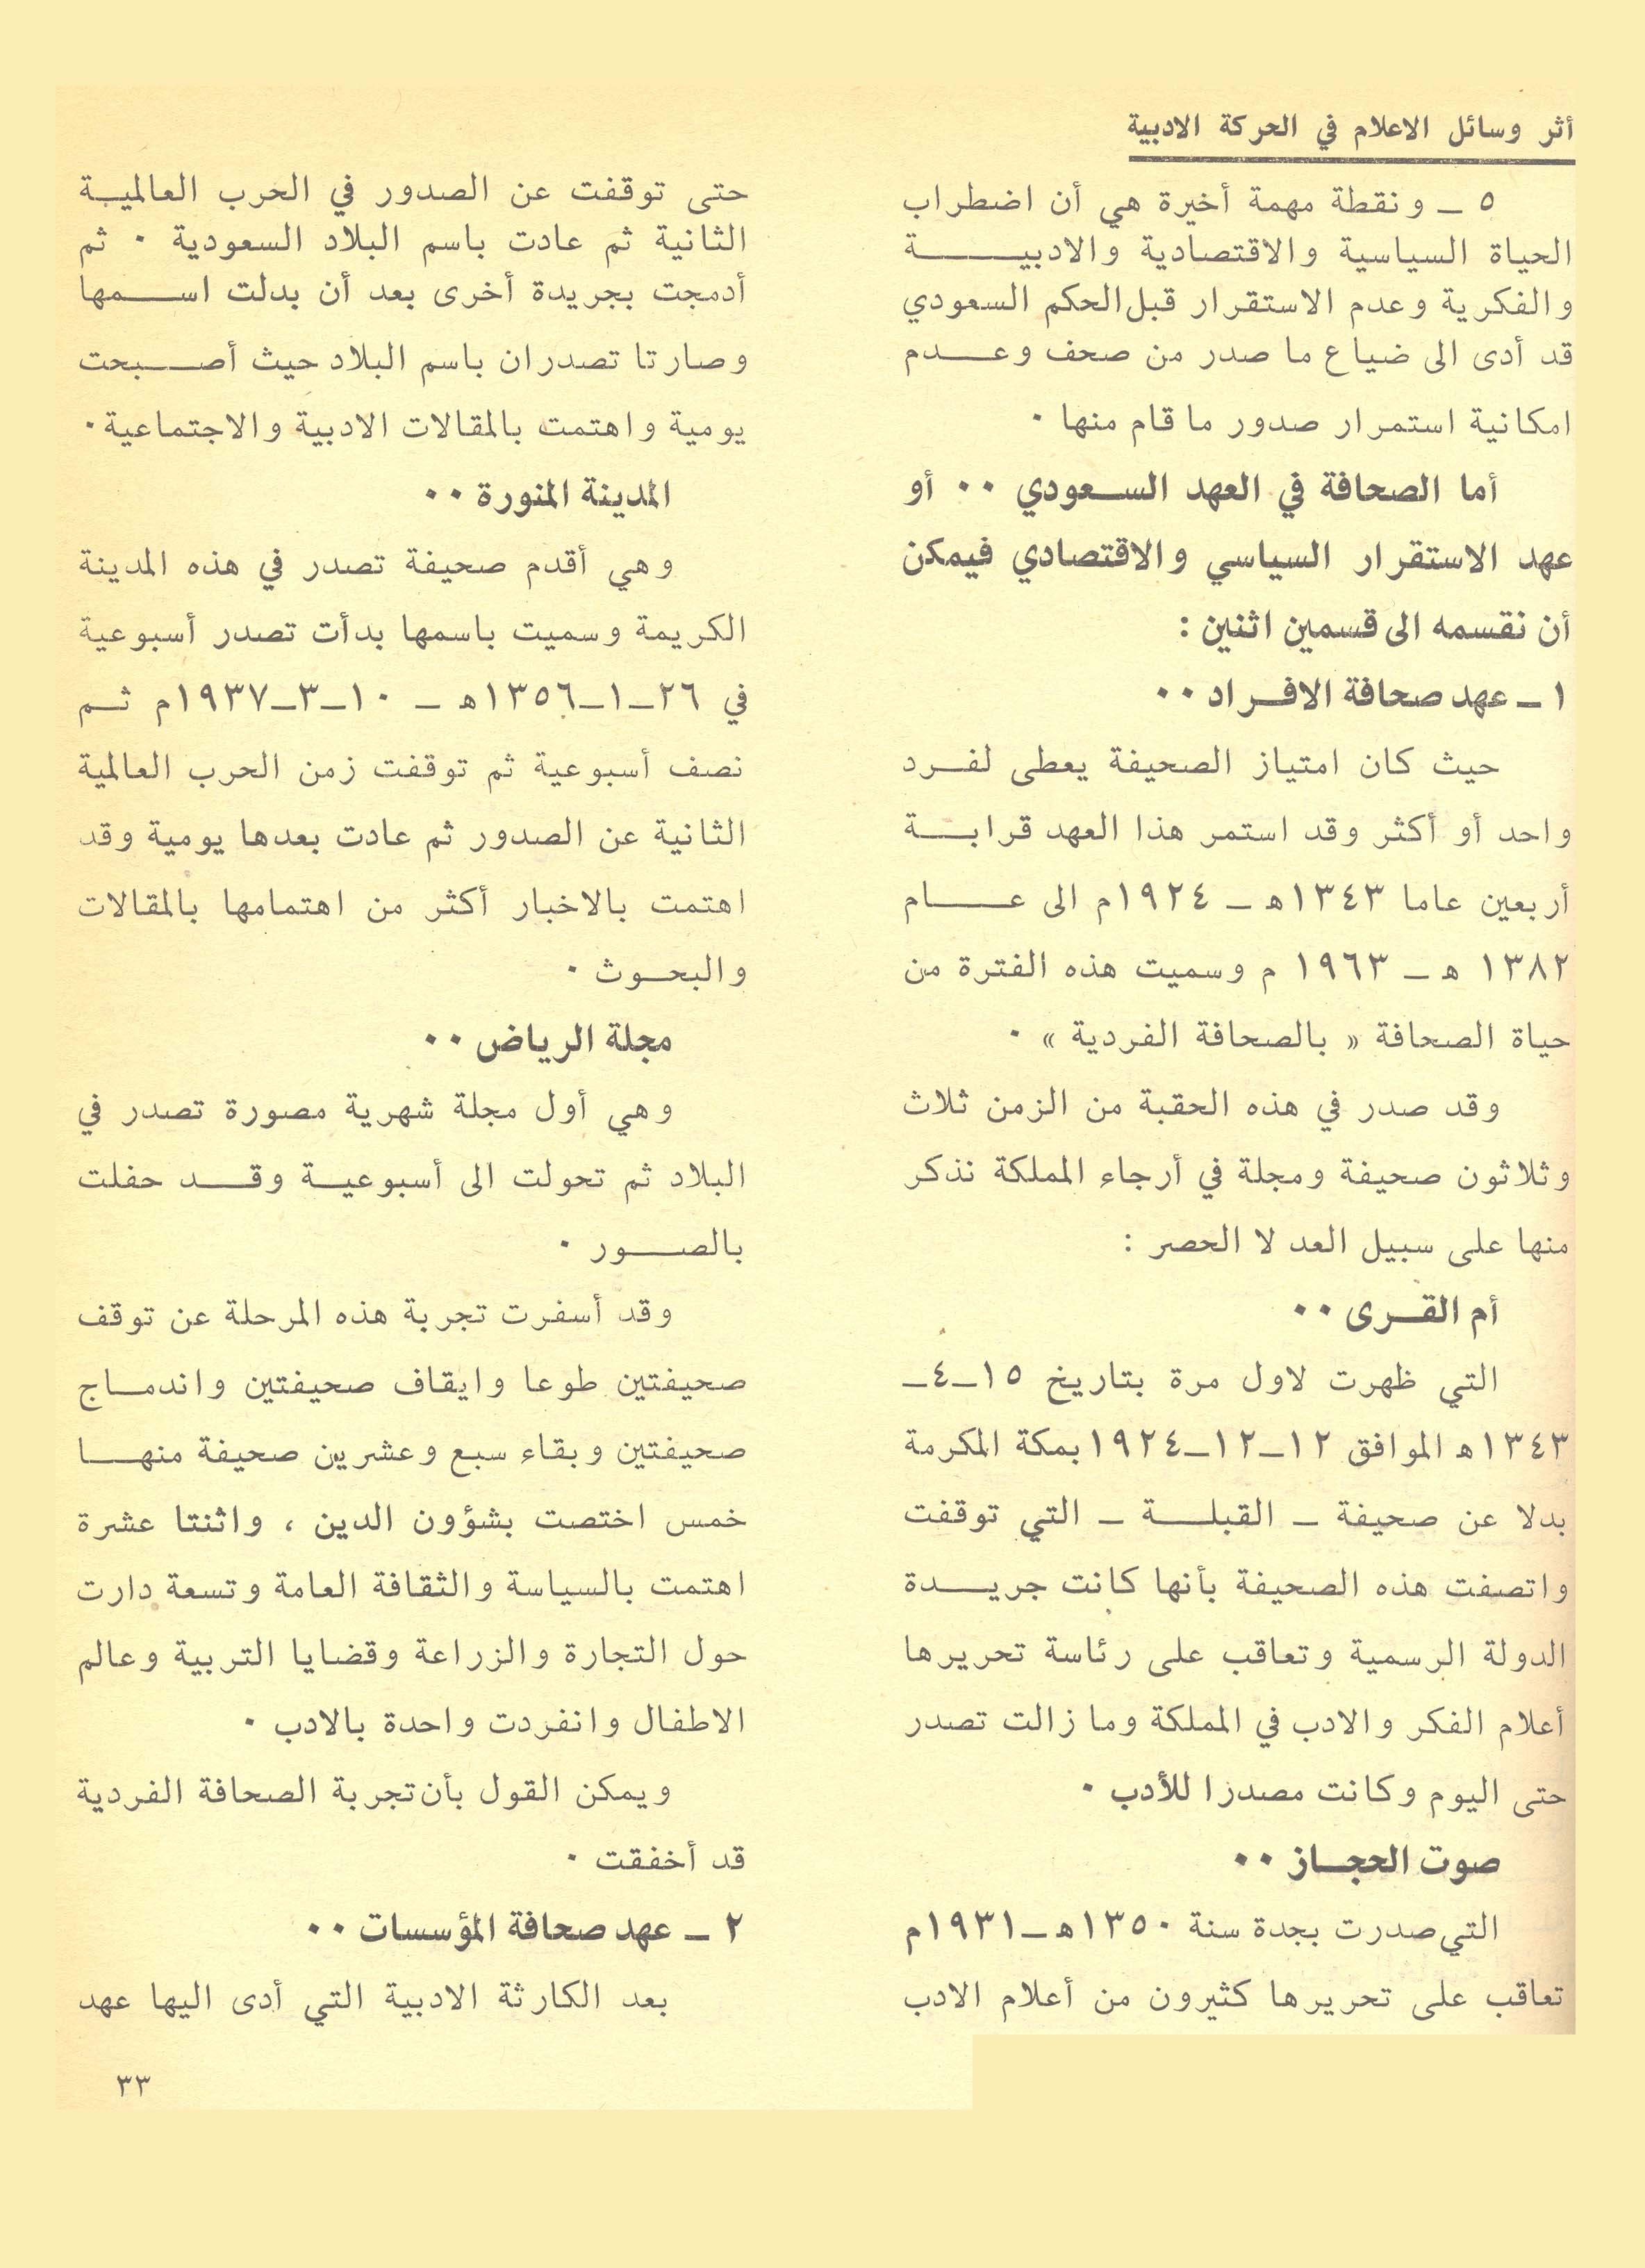 أثر وسائل الاعلام في الحركة الادبية
٥ ــ ونقطة مهمة أخيرة هي أن اضطراب
الحياة السياسية والاقتصادية والادبيــــــة
والفكرية وعدم الاستقرار قبل الحكم السعودي
قد أدى الى ضياع ما صدر من صحف وعــــدم
امكانية استمرار صدور ما قام منها ٠
أما الصحافة في العهد الســعودي ٠٠ أو
عهد الاستقرار السياسي والاقتصادي فيمكن
أن نقسمه الى قسمين اثنين :
١ ــ عهد صحافة الافــراد ٠٠
حيث كان امتياز الصحيفة يعطى لفــرد
واحد أو أكثر وقد استمر هذا العهد قرابــــة
أربعين عاما ١٣٤٣هـ ــ ١٩٢٤م الى عـــــام
١٣٨٢ هـ ــ ١٩٦٣ م وسميت هذه الفترة من
حياة الصحافة « بالصحافة الفردية » ٠
وقد صدر في هذه الحقبة من الزمن ثلاث
وثلاثون صحيفة ومجلة في أرجاء المملكة نذكر
منها على سبيل العد لا الحصر :
أم القــرى ٠٠
التي ظهرت لاول مرة بتاريخ ١٥ــ٤ــ
١٣٤٣هـ الموافق ١٢ــ١٢ــ١٩٢٤ بمكة المكرمة
بدلا عن صحيفة ــ القبلــــة ــ التي توقفت
واتصفت هذه الصحيفة بأنها كانت جريــــدة
الدولة الرسمية وتعاقب على رئاسة تحريرها
أعلام الفكر والادب في المملكة وما زالت تصدر
حتى اليوم وكانت مصدرا للأدب ٠
صوت الحجــاز ٠٠
التي صدرت بجدة سنة ١٣٥٠هـ ــ١٩٣١م
تعاقب على تحريرها كثيرون من أعلام الادب
حتى توقفت عن الصدور في الحرب العالميــة
الثانية ثم عادت باسم البلاد السعودية ٠ ثم
أدمجت بجريدة أخرى بعد أن بدلت اســـمها
وصارتا تصدران باسم البلاد حيث أصـــبحت
يومية واهتمت بالمقالات الادبية والاجتماعية ٠
المدينة المنورة ٠٠
وهي أقدم صحيفة تصدر في هذه المدينة
الكريمة وسميت باسمها بدأت تصدر أسبوعية
في ٢٦ــ١ــ١٣٥٦هـ ــ ١٠ــ٣ــ١٩٣٧م ثــم
نصف أسبوعية ثم توقفت زمن الحرب العالمية
الثانية عن الصدور ثم عادت بعدها يومية وقد
اهتمت بالاخبار أكثر من اهتمامها بالمقالات
والبحــوث ٠
مجلة الرياض ٠٠
وهي أول مجلة شهرية مصورة تصدر في
البلاد ثم تحولت الى أسبوعيــة وقــــد حفلت
بالصـــور ٠
وقد أسفرت تجربة هذه المرحلة عن توقف
صحيفتين طوعا وايقاف صحيفتين واندمــاج
صحيفتين وبقاء سبع وعشرين صحيفة منهـــا
خمس اختصت بشؤون الدين ، واثنتا عشرة
اهتمت بالسياسة والثقافة العامة وتسعة دارت
حول التجارة والزراعة وقضايا التربية وعالم
الاطفال وانفردت واحدة بالادب ٠
ويمكن القول بأن تجربة الصحافة الفردية
قد أخفقت ٠
٢ ــ عهد صحافة المؤسسات ٠٠
بعد الكارثة الادبية التي أدى اليها عهد
٣٣